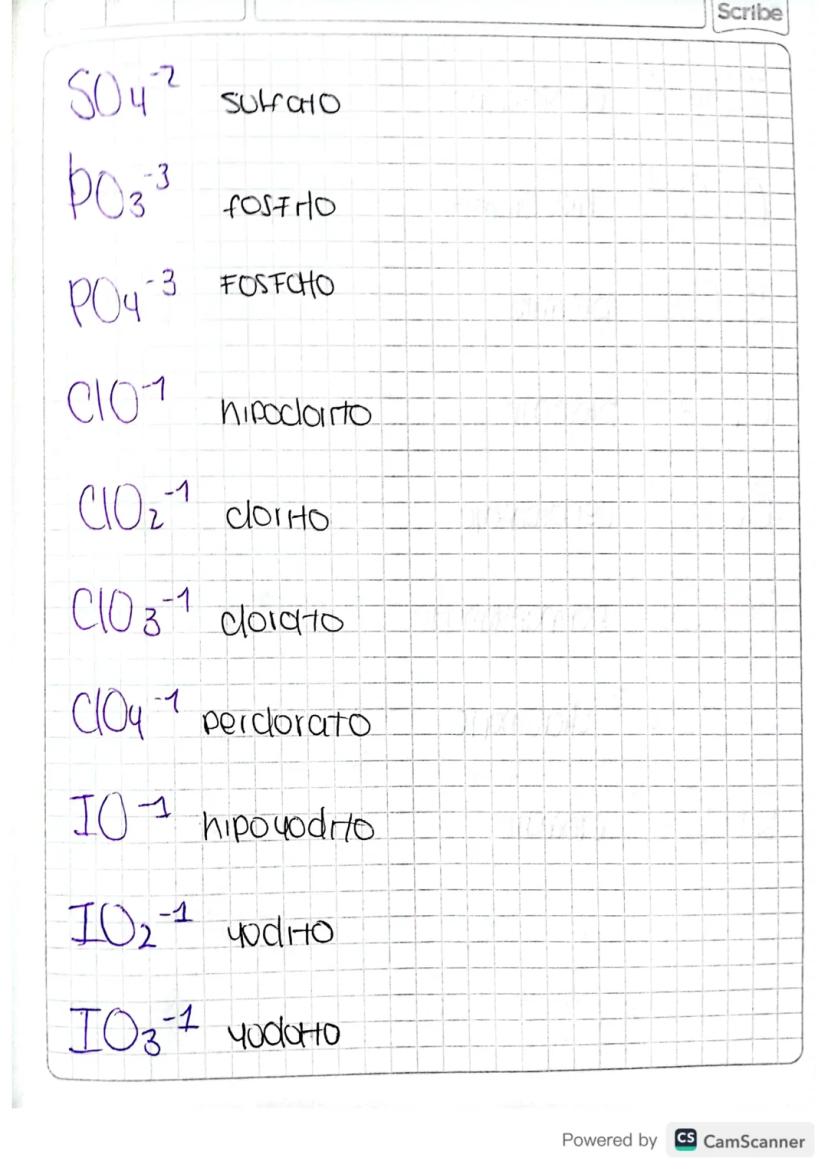 Scribe
SO4-2 sulfato
PO3-3 fosfito
PO4-3 FOSFato
ClO-1 hipoclorito
ClO2-1 clorito
ClO3-1 clorato
ClO4-1 perclorato
IO-1 hipoyodito
IO2-1 yodito
IO3-1 yodato
Powered by CS CamScanner